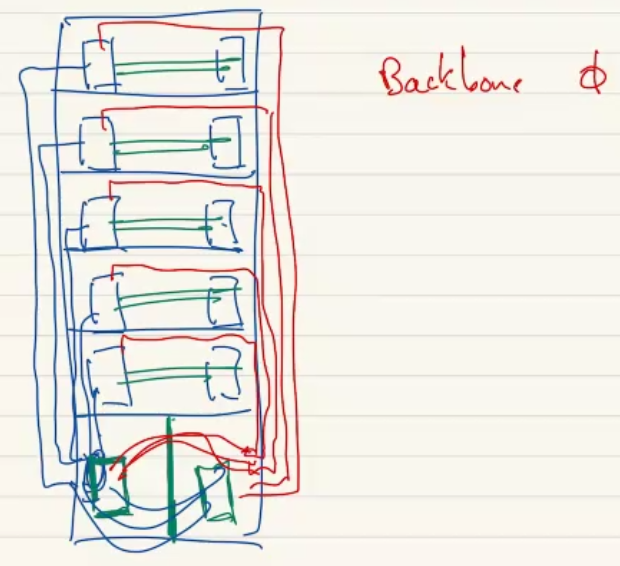 Backbone ф